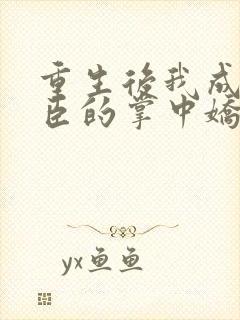 重生後我成
臣的掌中嬌
yx鱼鱼